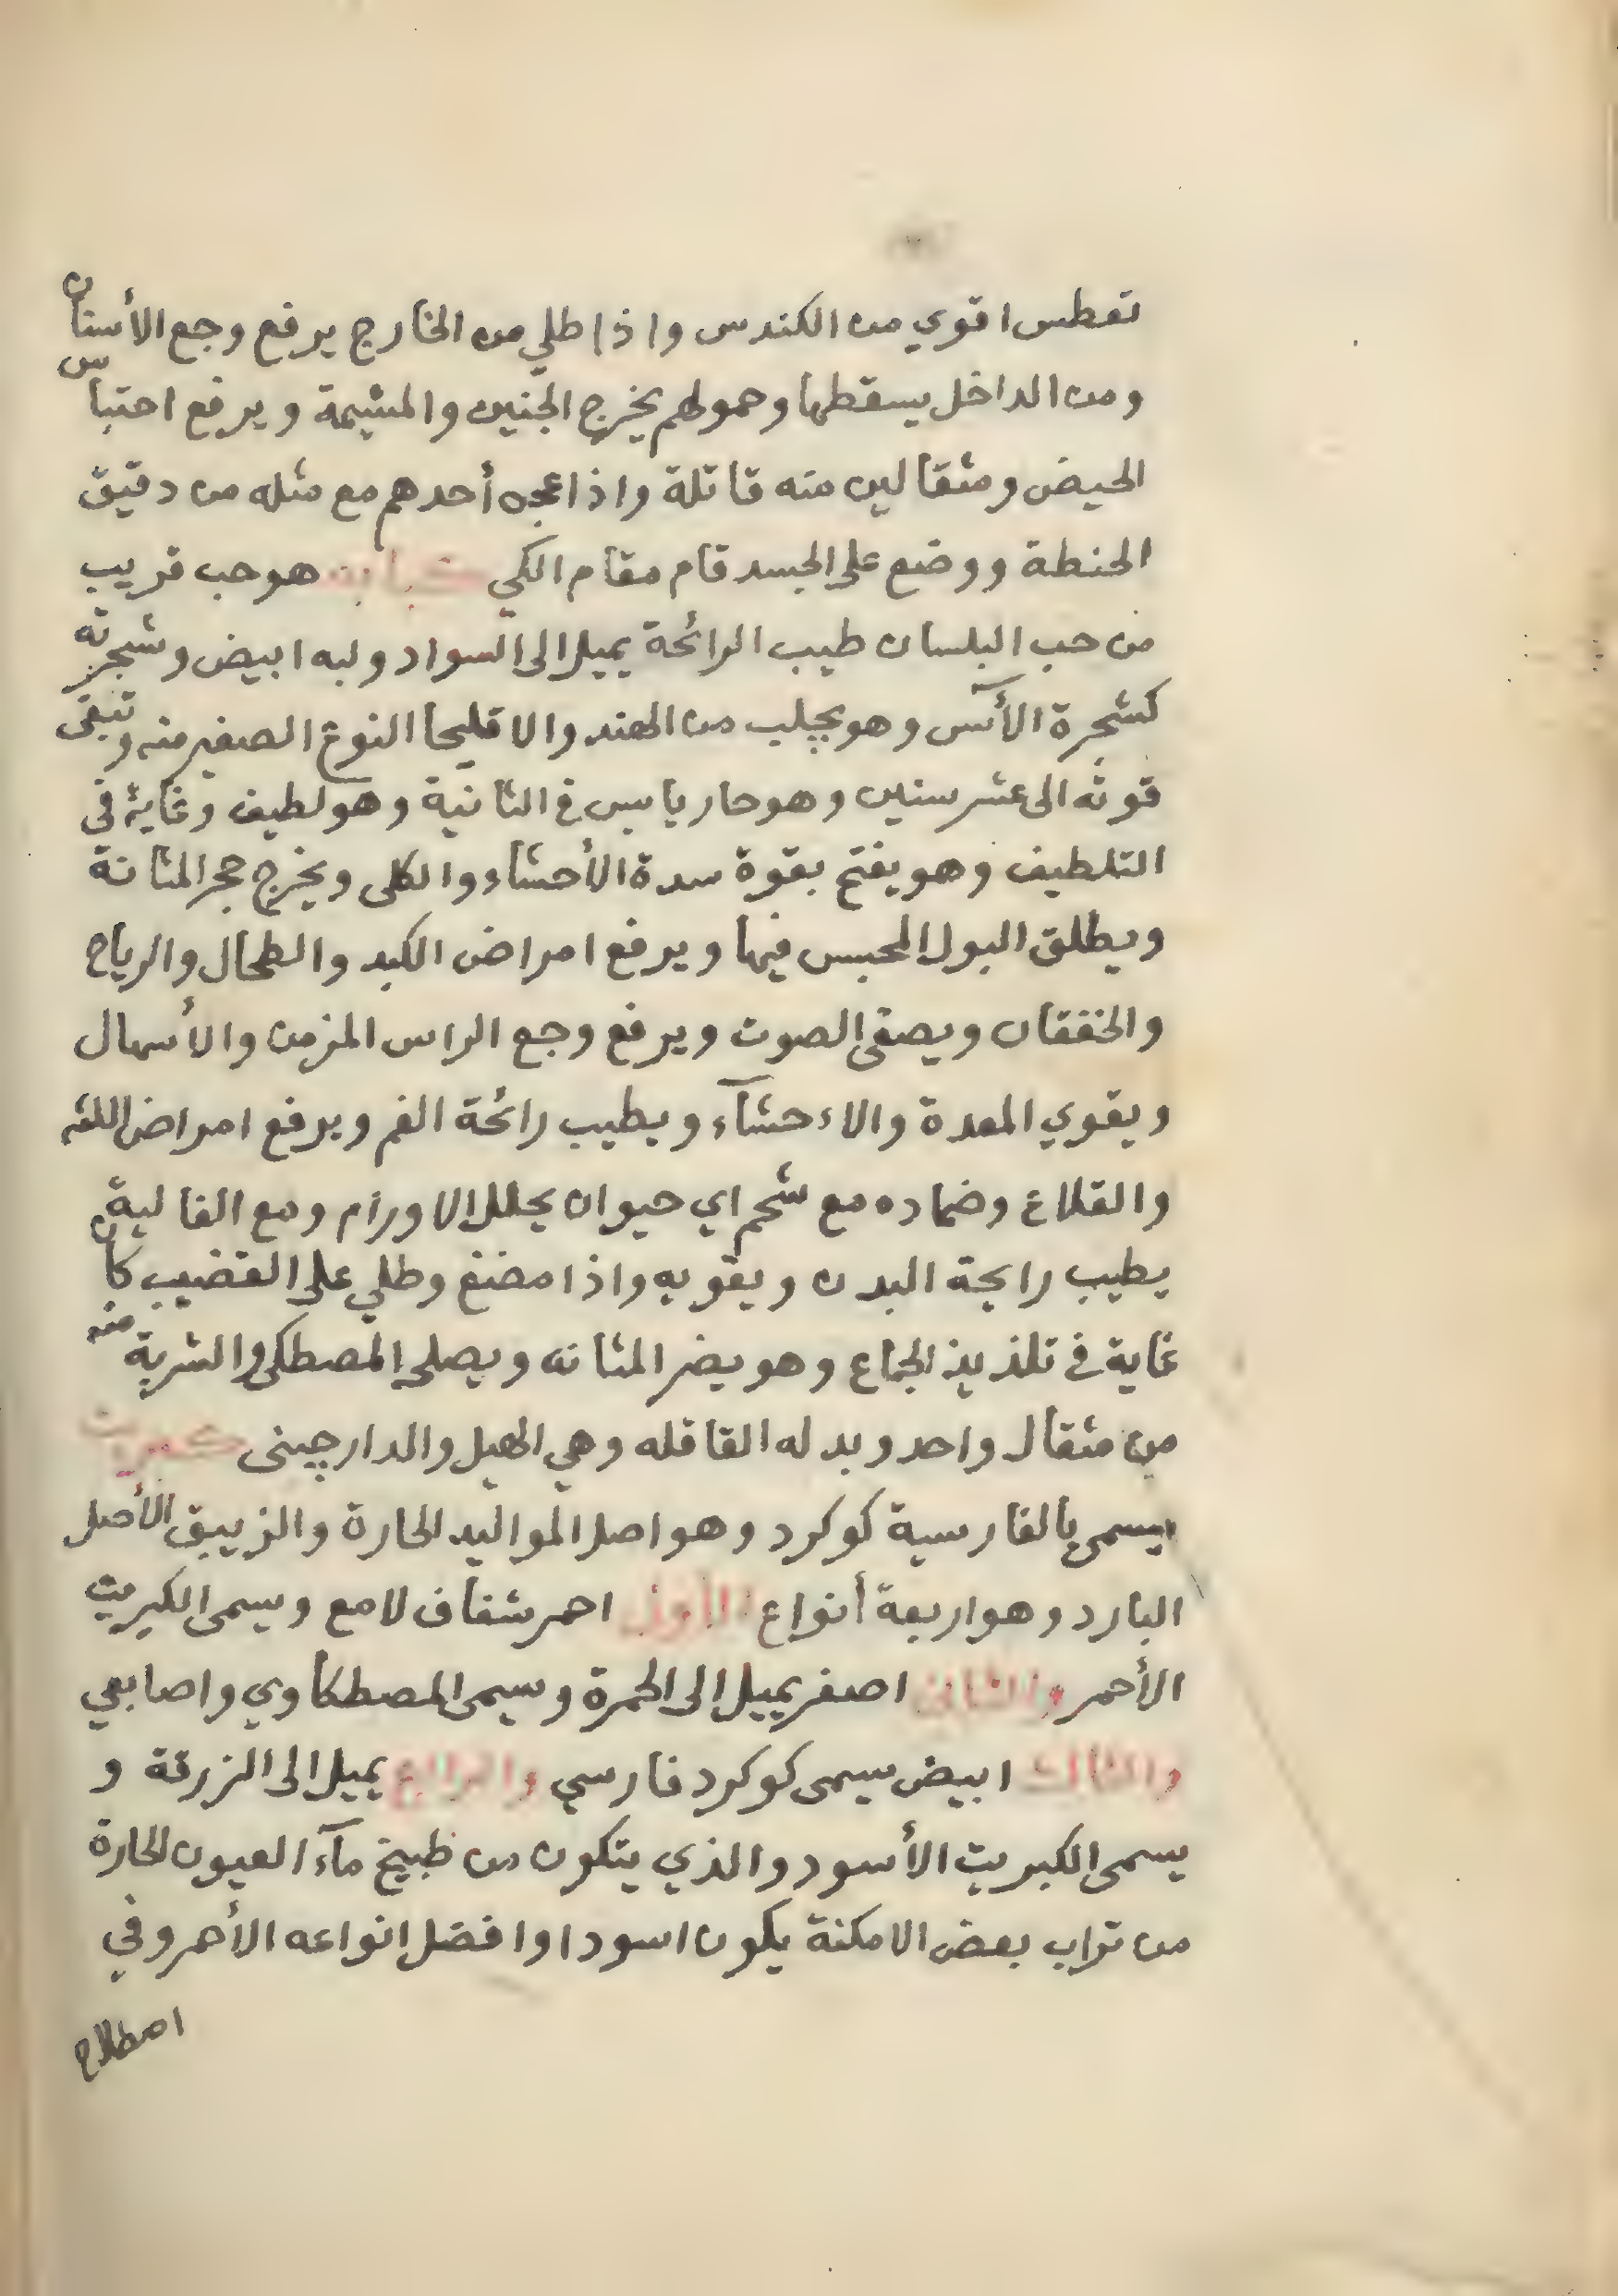 تعطس اقوي من الكندس واذا طلي من الخارج يرفع وجع الأسنان
ومن الداخل يسقطها وحمولهم يخرج الجنين والمشيمة ويرفع احتباس
الحيض ومثقالين منه قاتلة واذا عجن أحدهم مع مثله من دقيق
الحنطة ووضع على الجسد قام مقام الكي كبابه هو حب قريب
من حب البلسان طيب الرائحة يميل الى السواد ولبه ابيض وشجرته
كشجرة الأس وهو يجلب من الهند والاقليحا النوع الصغير منه وتبقى
قوته الى عشر سنين وهو حار يابس في الثانية وهو لطيف وغاية في
التلطيف وهو يفتح بقوة سدة الأحشاء والكلى ويخرج حجر المثانة
ويطلق البول المحبس فيها ويرفع امراض الكبد والطحال والرياح
والخفقان ويصفى الصوت ويرفع وجع الراس المزمن والأسهال
ويقوي المعدة والاءحشآء ويطيب رائحة الفم ويرفع امراض اللثه
والقلاع وضماده مع شحم اي حيوان يحلل الاورام ومع الغالية
يطيب رايحة البدن ويقويه واذا مضغ وطلي على القضيب كان
غاية في تلذيذ الجماع وهو يضر المثانه ويصلحه المصطكى والشربة منه
من مثقال واحد وبدله القاقله وهي الهيل والدارچينى كبريت
يسمى بالفارسية كوكرد وهو اصل المواليد الحارة والزيبق الأصل
البارد وهو اربعة أنواع الأول احمر شفاف لامع ويسمى الكبريت
الأحمر والثاني اصفر يميل الى الحمرة وسيمى المصطكاوي واصابعي
والثالث ابيض سيمى كوكرد فارسي والرابع يميل الى الزرقة و
يسمى الكبريت الأسود والذي يتكون من طبيخ مآء العيون الحارة
من تراب بعض الامكنة يكون اسودا وافضل انواعه الأحمر وفي
اصطلاح